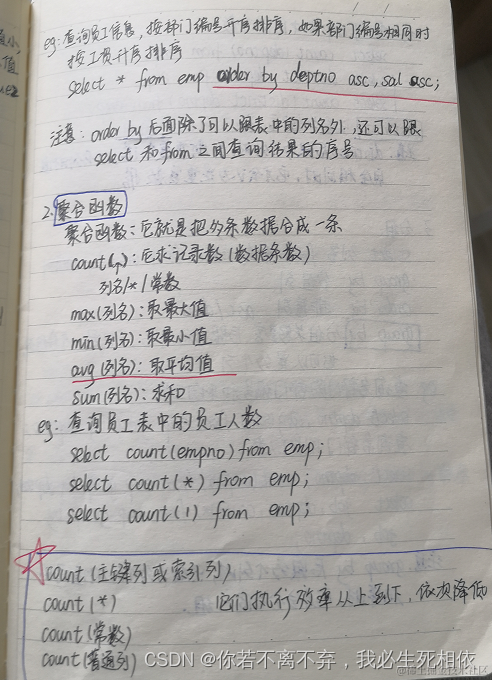 eg: 查询员工信息, 按部门编号升序排序, 如果部门编号相同时
按工资升序排序
select * from emp order by deptno asc, sal asc;
注意: order by 后面除了可以跟表中的列名外, 还可以跟
select 和 from 之间查询结果的序号
2. 聚合函数
聚合函数: 它就是把多条数据合成一条
count( ): 它求记录数(数据条数)
列名/*/常数
max(列名): 取最大值
min(列名): 取最小值
avg(列名): 取平均值
sum(列名): 求和
eg: 查询员工表中的员工人数
select count(empno) from emp;
select count(*) from emp;
select count(1) from emp;
count(主键列或索引列)
count(*) 它们执行效率从上到下, 依次降低
count(常数)
count(普通列)
CSDN @你若不离不弃,我必生死相依